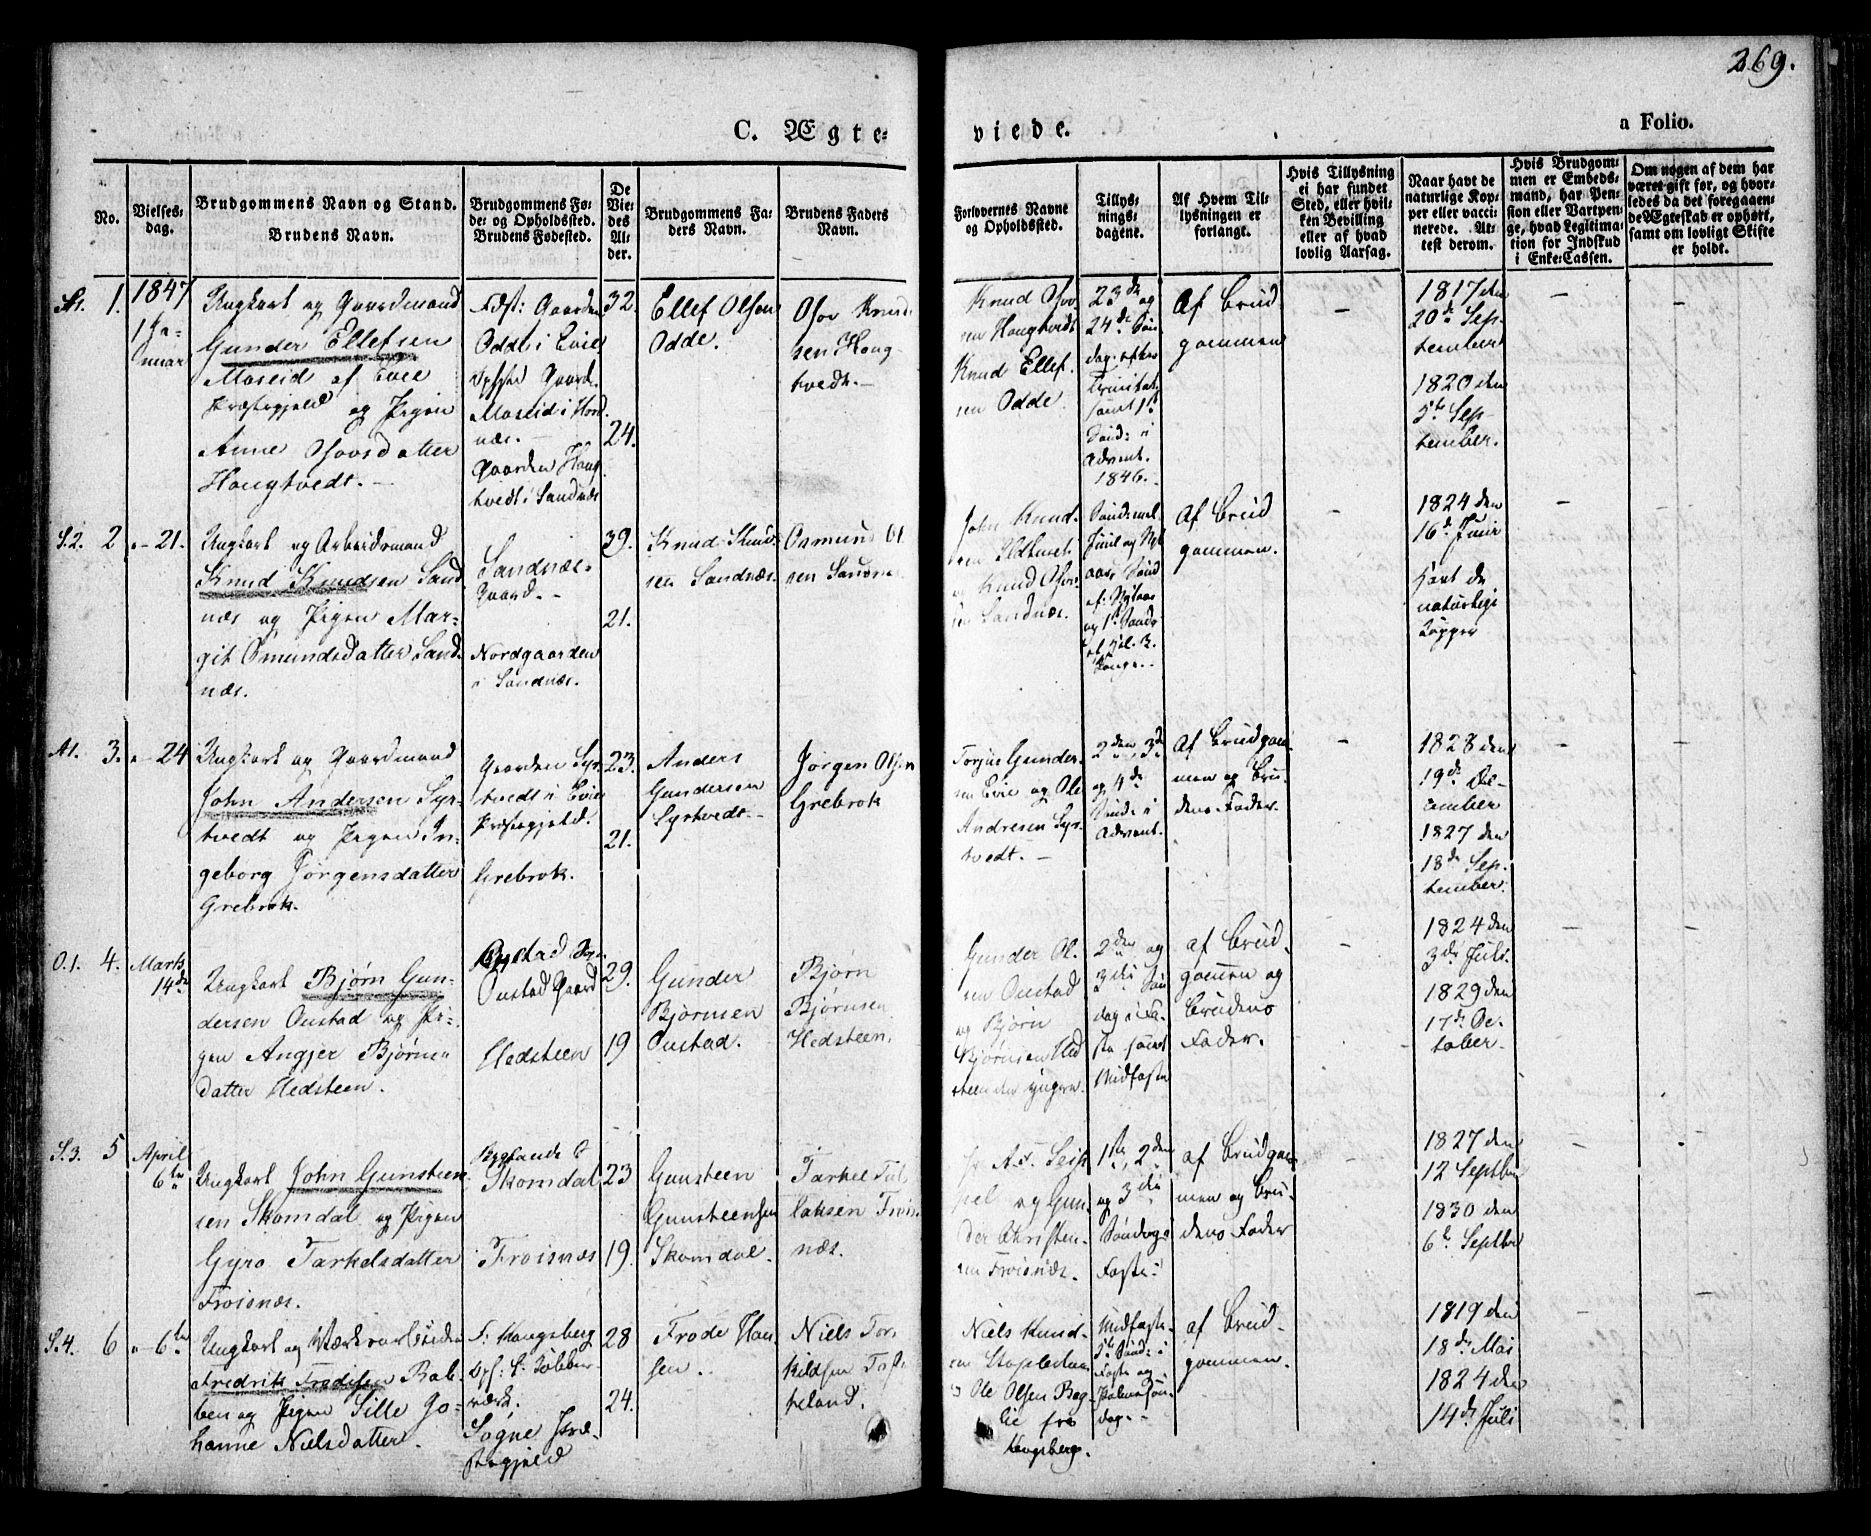 269.
C. Ægte-
viede.
a Folio.
No.
Vielses-
dag.
Brudgommens Navn og Stand.
Brudens Navn.
Brudgommens Fø-
de- og Opholdssted.
Brudens Fødested.
De
Vie-
des
Al-
der.
Brudgommens Fa-
ders Navn.
Brudens Faders
Navn.
Forlovernes Navne
og Opholdssted.
Tillys-
nings-
dagene.
Af Hvem Til-
lysningen er
forlangt.
Hvis Tillysning
ei har fundet
Sted, eller hvil-
ken Bevilling
eller af hvad
lovlig Aarsag.
Naar havt de
naturlige Kop-
per eller vacci-
nerede. At-
test derom.
Hvis Brudgom-
men er Embeds-
mand, har Pen-
sion eller Vartpen-
ge, hvad Legitima-
tion for Indskud
i Enke-Cassen.
Om nogen af dem har
været gift før, og hvor-
ledes da det foregaaen-
de Ægteskab er ophørt,
samt om lovligt Skifte
er holdt.
1.
1847
1 Ja-
nuar
Ungkarl og Gaardmand
Gunder Ellefsen
Moseid af Evie
Præstegjeld og Pigen
Anne Osovsdatter
Hougtvedt.
Fdst: Gaarden
Odde i Evie
Gaard.
Moseid i Horn
næs.
Gaarden Houg
tvedt i Sandnæs
32.
24.
Ellef Olsen
Odde.
Osov Knud-
sen Houg-
tvedt.
Knud Osov
sen Hougtvedt
Knud Ellef
sen Odde
23de og
24de Søn
dag efter
Trinitat.
samt 1ste
Sønd: i
Advent.
1846.
Af Brud
gommen
1817 den
20de Sep-
tember
1820 den
5te Sep-
tember.
S.2. 2 "-21.
Ungkarl og Arbeidsmand
Knud Knudsen Sand
næs og Pigen Mar-
git Osmundsdatter Sand-
næs.
Sandnæs-
Gaard.
Nordgaarden
i Sandnæs.
39.
21.
Knud Knud-
sen Sandnæs.
Osmund Ol
sen Sandnæs
John Knud-
sen
og Knud Osov-
sen Sandnæs.
Af Brud
gommen.
1824 den
16de Juni
havt de
naturlige
Kopper
A1. 3. "-24
Ungkarl og Gaardmand
John Andersen Syr-
tvedt og Pigen In-
geborg Jørgensdatter
Grebrok.
Gaarden Syr-
tvedt i Evie
Præstegjeld.
Grebrok.
23.
21.
Anders
Gundersen
Syrtvedt.
Jørgen Olsen
Grebrok
Torjus Gunder-
sen Evie og Ole
Andresen Syr-
tvedt.
2den, 3de
og 4de
Sønd: i
Advent.
Af Brudgom-
men og Bru-
dens Fader.
1828 den
19de De-
cember
1827 den
18de Sep-
tember.
O.1. 4. Marts
14de
Ungkarl Bjørn Gun-
dersen Oustad og Pi-
gen Angjer Bjørns-
datter Hedsteen.
Oustad Gaard
Hedsteen
29.
19
Gunder
Bjørnsen
Oustad.
Bjørn
Bjørnsen
Hedsteen.
Gunder Ol-
sen Oustad
og Bjørn
Bjørnsen Hed
steen den yngere.
2den og
3die Søn
dag i Fa-
ste samt
Midfaste
af Brud-
gommen og
Brudens
Fader.
1824 den
3die Juli.
1829 den
17de Oc-
tober.
S.3. 5 April
6te
Ungkarl John Gunsteen-
sen Skomdal og Pigen
Gyro Tarkelsdatter
Froisnæs.
Skomdal
Froisnæs
23
19.
Gunsteen
Gunsteensen
Skomdal.
Tarkel Tol
laksen Frois-
næs.
og Gun-
der Christen-
sen Froisnæs.
1ste, 2den
og 3die
Søndag i
Faste.
af Brudgom-
men og Bru-
dens Fader
1827 den
12 Septber
1830 den
6te Septbr
S.4. 6 "-6te
Ungkarl og Værksarbeider
Fredrik Frodesen Bak-
ken og Pigen Sille Jo-
hanne Nielsdatter.
F: Kongsberg
værk.
Søgne Præ-
stegjeld
28
24.
Frode Han-
sen.
Niels Tor-
kildsen Tofte-
heland.
Niels Knud-
sen
og Ole Olsen Bag-
lie fra
Kongsberg.
Midfaste-
5te Sønd: i
Faste og
Palmesøn-
dag.
af Brud-
gommen.
1819 den
18de Mai
1824 den
14de Juli